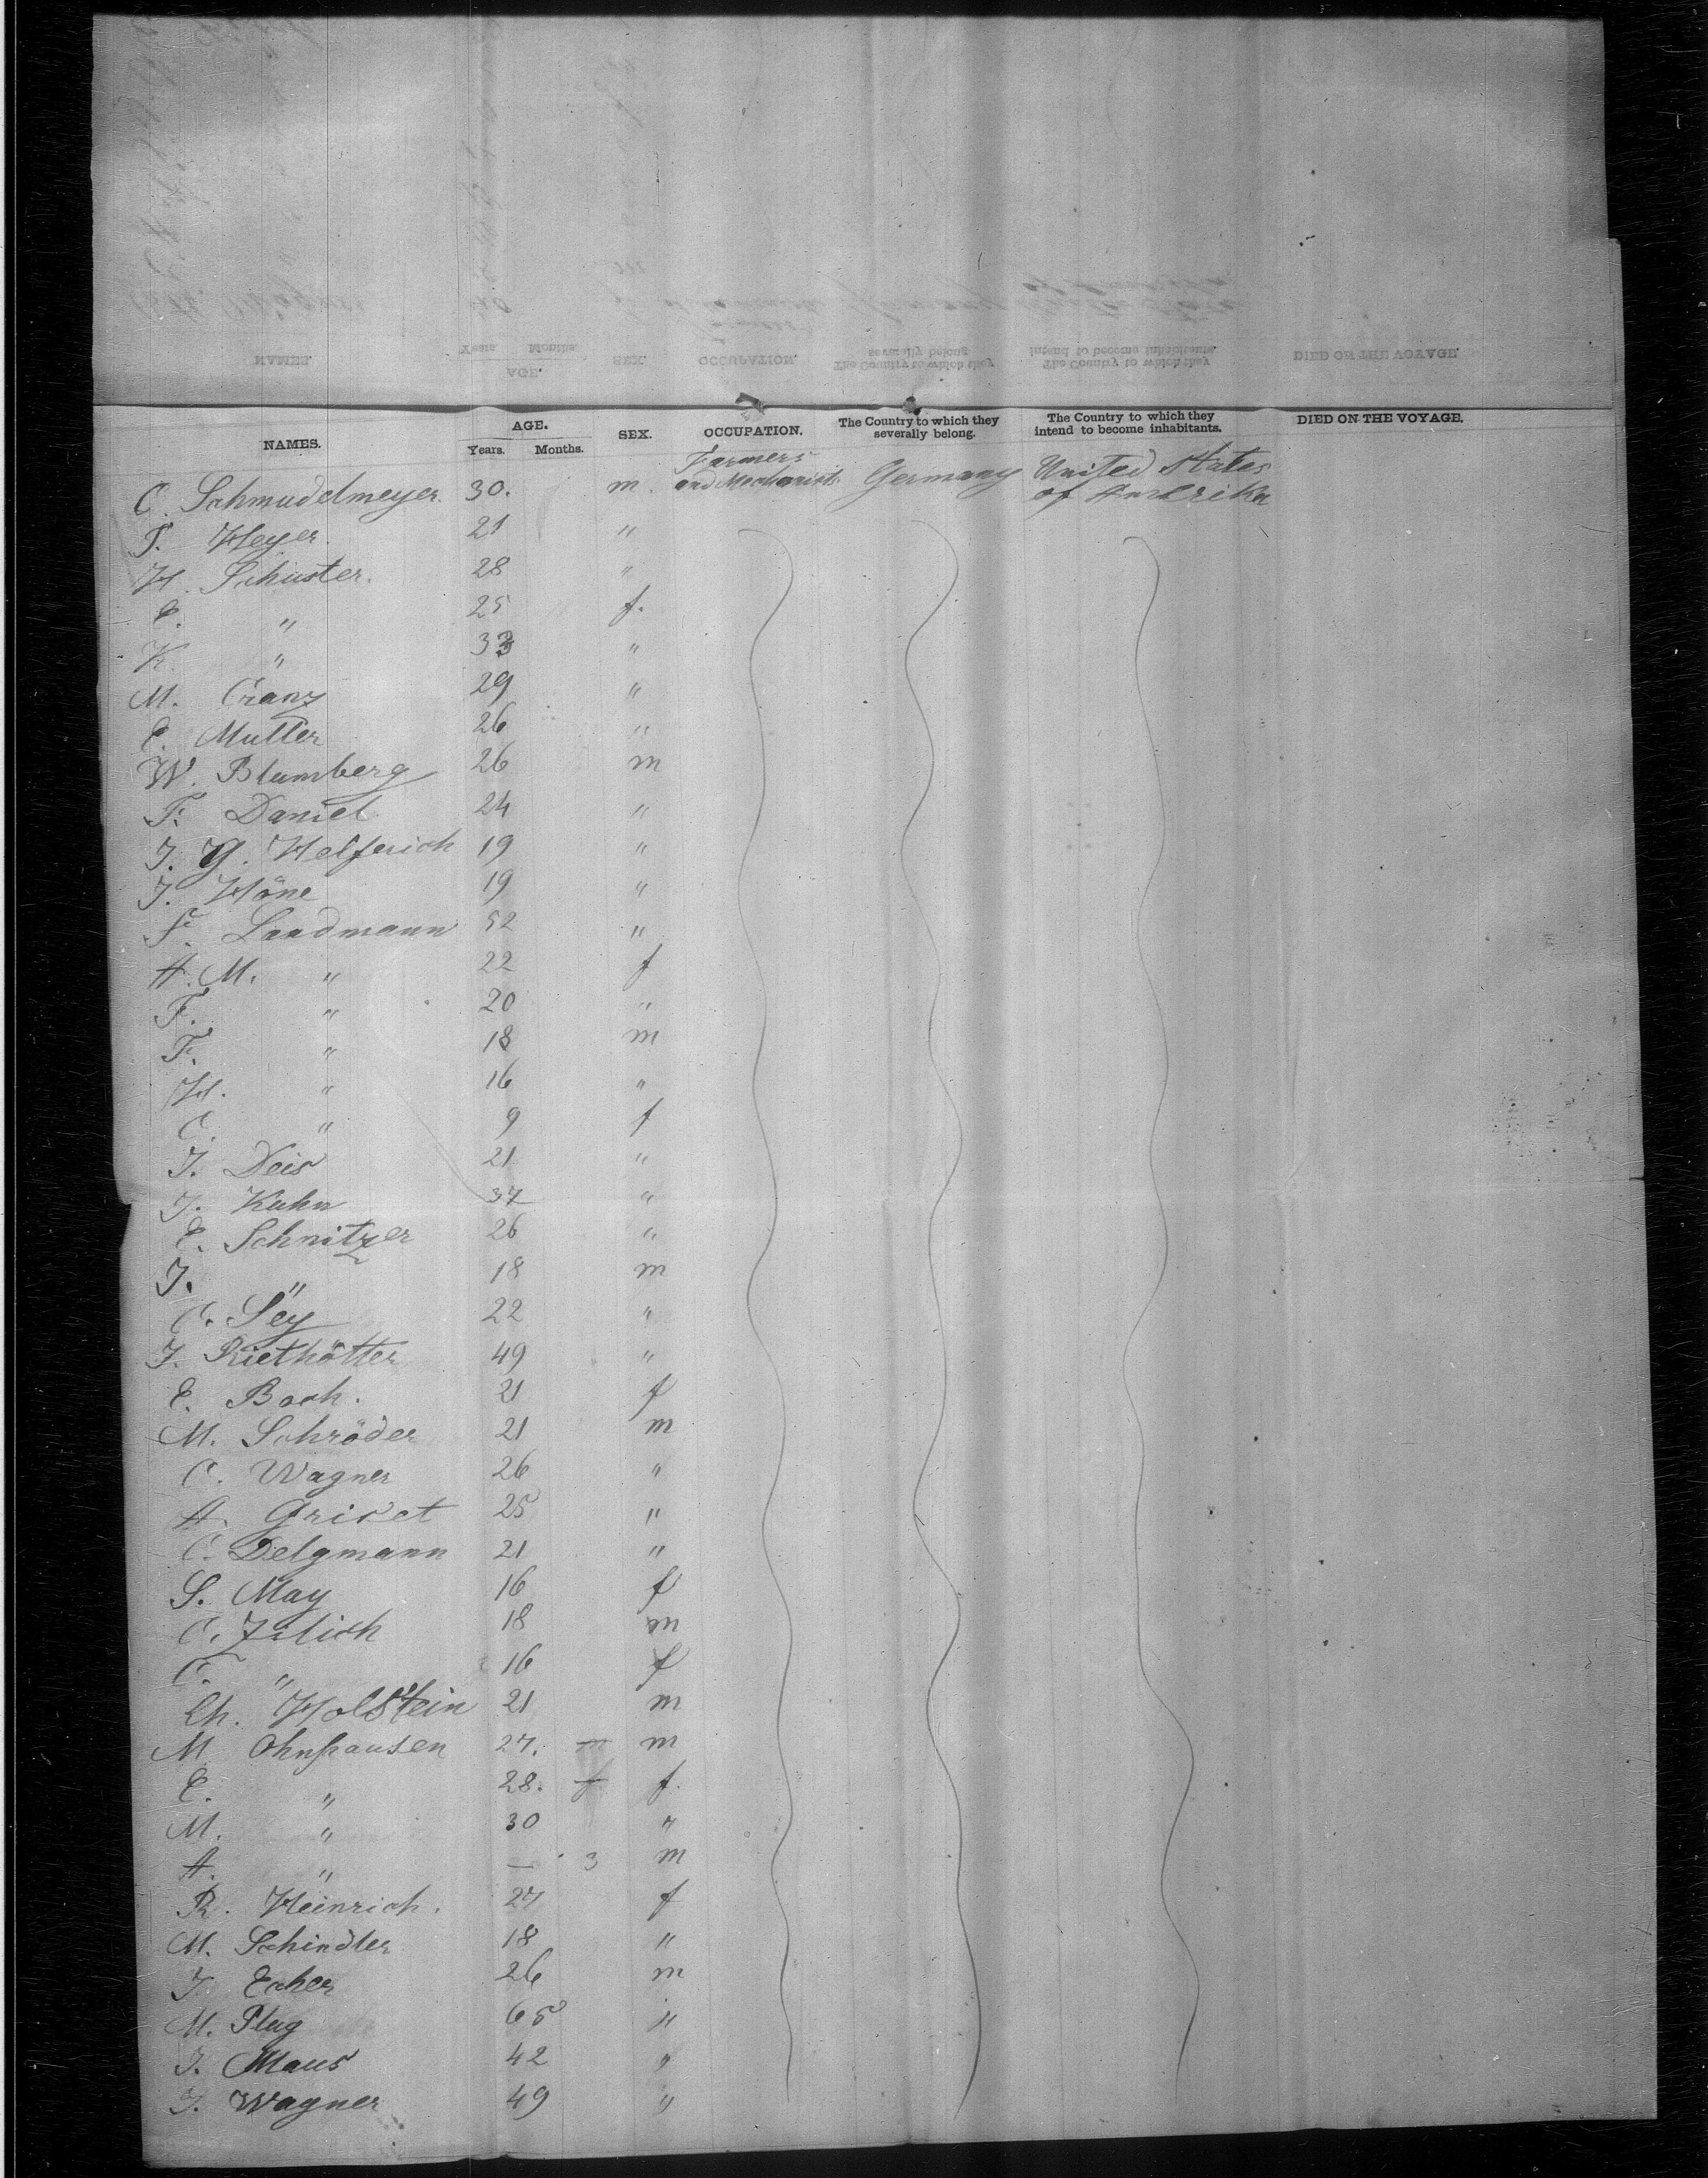 NAMES. AGE. Years. Months. SEX. OCCUPATION. The Country to which they severally belong. The Country to which they intend to become inhabitants. DIED ON THE VOYAGE.
C. Schmudelmeyer. 30. m. Farmers and Mechanics. Germany United States of Amerika
P. Heyer. 21 "
H. Schuster. 28 "
E. " 25 f.
K. " 33 "
M. Cranz 29 "
E. Muller 26 "
W. Blumberg 26 m
F. Daniel 24 "
J. G. Helferich 19 "
J. Höne 19 "
F. Landmann 52 "
A. M. " 22 f
F. " 20 "
F. " 18 m
H. " 16 "
C. " 9 f
J. Deis 21 "
J. Kuhn 37 "
E. Schnitzer 26 "
J. " 18 m
C. Sey 22 "
J. Riethötter 49 "
E. Bock. 21 f
M. Schröder 21 m
C. Wagner 26 "
A. Griset 25 "
C. Delgmann 21 "
S. May 16 f
C. 18 m
C. " 16 f
Ch. Holstein 21 m
M. Ohnhausen 27. m m
E. " 28. f f.
M. " 30 "
A. " — 3 m
R. Heinrich. 27 f
M. Schindler 18 "
J. Echer 26 m
M. Plug 65 "
J. Maus 42 "
J. Wagner 49 "